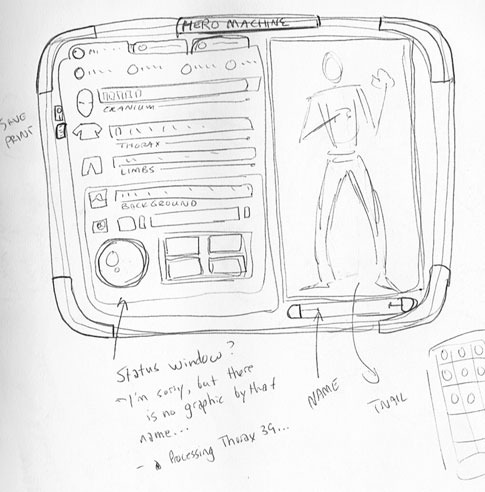 HERO MACHINE
SAVE
PRINT
CRANIUM
THORAX
LIMBS
BACKGROUND
Status window?
- I'm sorry, but there
is no graphic by that
name...
- Processing Thorax 39...
NAME